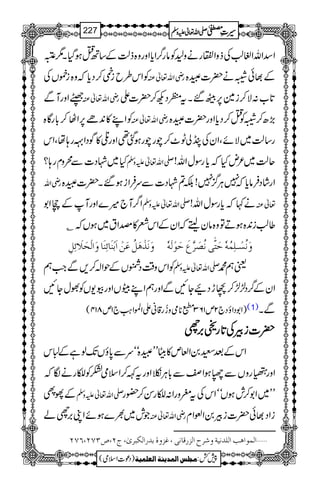 سیرتِ مصطفیٰ صلی اللہ تعالیٰ علیہ وسلم 227
اسد اللہ الغالب کی ذوالفقار نے ولید کو مار گرایا اور وہ ذلت کے ساتھ قتل ہو گیا۔ مگر عتبہ
کے بھائی شیبہ نے حضرت عبیدہ رضی اللہ تعالیٰ عنہ کو اس طرح زخمی کر دیا کہ وہ زخموں کی
تاب نہ لا کر زمین پر بیٹھ گئے۔ یہ منظر دیکھ کر حضرت علی رضی اللہ تعالیٰ عنہ جھپٹے اور آگے
بڑھ کر شیبہ کو قتل کر دیا اور حضرت عبیدہ رضی اللہ تعالیٰ عنہ کو اپنے کاندھے پر اٹھا کر بارگاہ
رسالت میں لائے، ان کی پنڈلی ٹوٹ کر چور چور ہو گئی تھی اور نلی کا گودا بہہ رہا تھا، اس
حالت میں عرض کیا کہ یا رسول اللہ! صلی اللہ تعالیٰ علیہ وسلم کیا میں شہادت سے محروم رہا؟
ارشاد فرمایا کہ نہیں، ہرگز نہیں! بلکہ تم شہادت سے سرفراز ہو گئے۔ حضرت عبیدہ رضی اللہ
تعالیٰ عنہ نے کہا کہ یا رسول اللہ! صلی اللہ تعالیٰ علیہ وسلم اگر آج میرے اور آپ کے چچا ابو
طالب زندہ ہوتے تو وہ مان لیتے کہ ان کے اس شعر کا مصداق میں ہوں کہ
وَنُسْلِمُهٗ حَتّٰی نُصَرَّعَ حَوْلَهٗ وَنَذْهَلُ عَنْ اَبْنَائِنَا وَالْحَلَائِلِ
یعنی ہم محمد صلی اللہ تعالیٰ علیہ وسلم کو اس وقت دشمنوں کے حوالہ کریں گے جب ہم
ان کے گرد لڑ لڑ کر پچھاڑ دیئے جائیں گے اور ہم اپنے بیٹوں اور بیویوں کو بھول جائیں
گے۔(1) (ابوداؤد ج۲ ص۳۶۱ مطبع نامی و زرقانی علی المواہب ج۱ ص۴۱۸)
حضرت زبیر کی تاریخی برچھی
اس کے بعد سعید بن العاص کا بیٹا ”عبیدہ“ سر سے پاؤں تک لوہے کے لباس
اور ہتھیاروں سے چھپا ہوا صف سے باہر نکلا اور یہ کہہ کر اسلامی لشکر کو للکارنے لگا کہ
”میں ابو کرش ہوں“ اس کی یہ مغرورانہ للکار سن کر حضور صلی اللہ تعالیٰ علیہ وسلم کے پھوپھی
زاد بھائی حضرت زبیر بن العوام رضی اللہ تعالیٰ عنہ جوش میں بھرے ہوئے اپنی برچھی لے
......المواهب اللدنية وشرح الزرقانی، غزوة بدر الکبریٰ، ج۲، ص۲۷۳، ۲۷۶
پیش کش: مجلس المدینة العلمیة (دعوت اسلامی)